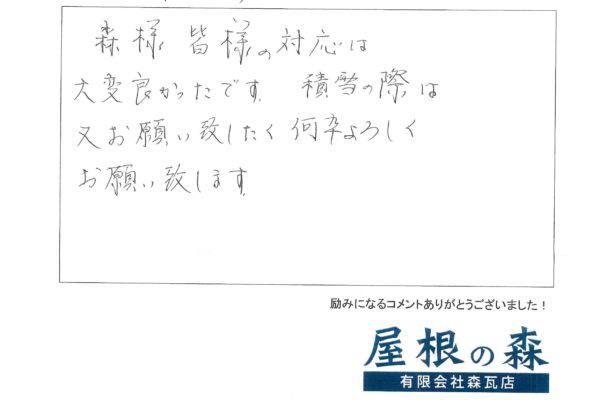 森様 皆様の対応は
大変良かったです。 積雪の際は
又お願い致したく何卒よろしく
お願い致します。
励みになるコメントありがとうございました！
屋根の森
有限会社森瓦店